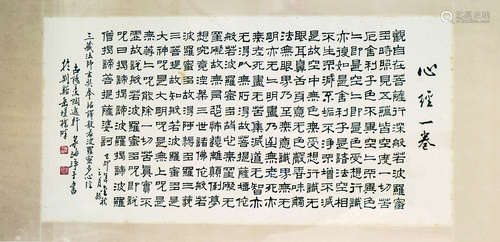 心經一卷
觀自在菩薩行深般若波羅蜜
多時照見五蘊皆空度一切苦
厄舍利子色不異空空不異色
色即是空空即是色受想行識
亦復如是舍利子是諸法空相
不生不滅不垢不淨不增不減
是故空中无色无受想行識无
眼耳鼻舌身意无色聲香味觸
法无眼界乃至无意識界无无
明亦无无明盡乃至无老死亦
无老死盡无苦集滅道无智亦
无得以无所得故菩提薩埵依
般若波羅蜜多故心无罣礙无
罣礙故无有恐怖遠離顛倒夢
想究竟涅槃三世諸佛依般若
波羅蜜多故得阿耨多羅三藐
三菩提故知般若波羅蜜多是
大神咒是大明咒是无上咒是
无等等咒能除一切苦真實不
虛故說般若波羅蜜多咒即說
咒曰揭諦揭諦波羅揭諦波羅
僧揭諦菩提薩婆訶
三藏法師玄奘奉詔譯般若波羅蜜多心經